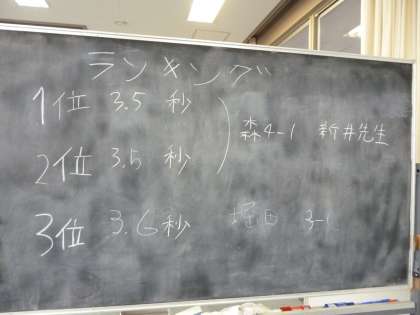 ランキング
1位 3.5 秒
森4-1 新井先生
2位 3.5 秒
3位 3.6秒 堀田 3-1